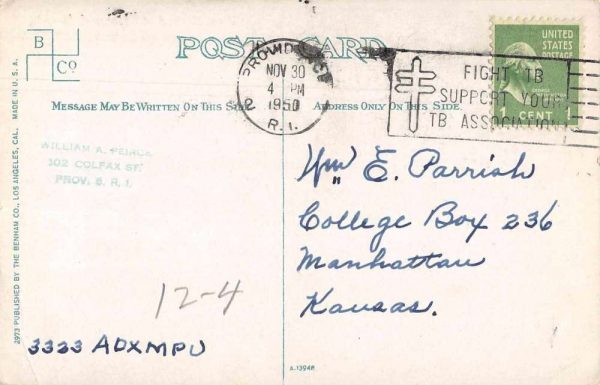 B
Co
POST CARD
PROVIDENCE
NOV 30
4 PM
1950
2
R. I.
FIGHT TB
SUPPORT YOUR
TB ASSOCIATION
UNITED
STATES
POSTAGE
CENT 1
MESSAGE MAY BE WRITTEN ON THIS SIDE
ADDRESS ONLY ON THIS SIDE
WILLIAM A. PEIRCE
102 COLFAX ST.
PROV. 5, R. I.
Wm E. Parrish
College Box 236
Manhattan
Kansas.
12-4
3333 ADXMPU
A-13948
2973 PUBLISHED BY THE BENHAM CO., LOS ANGELES, CAL. MADE IN U. S. A.